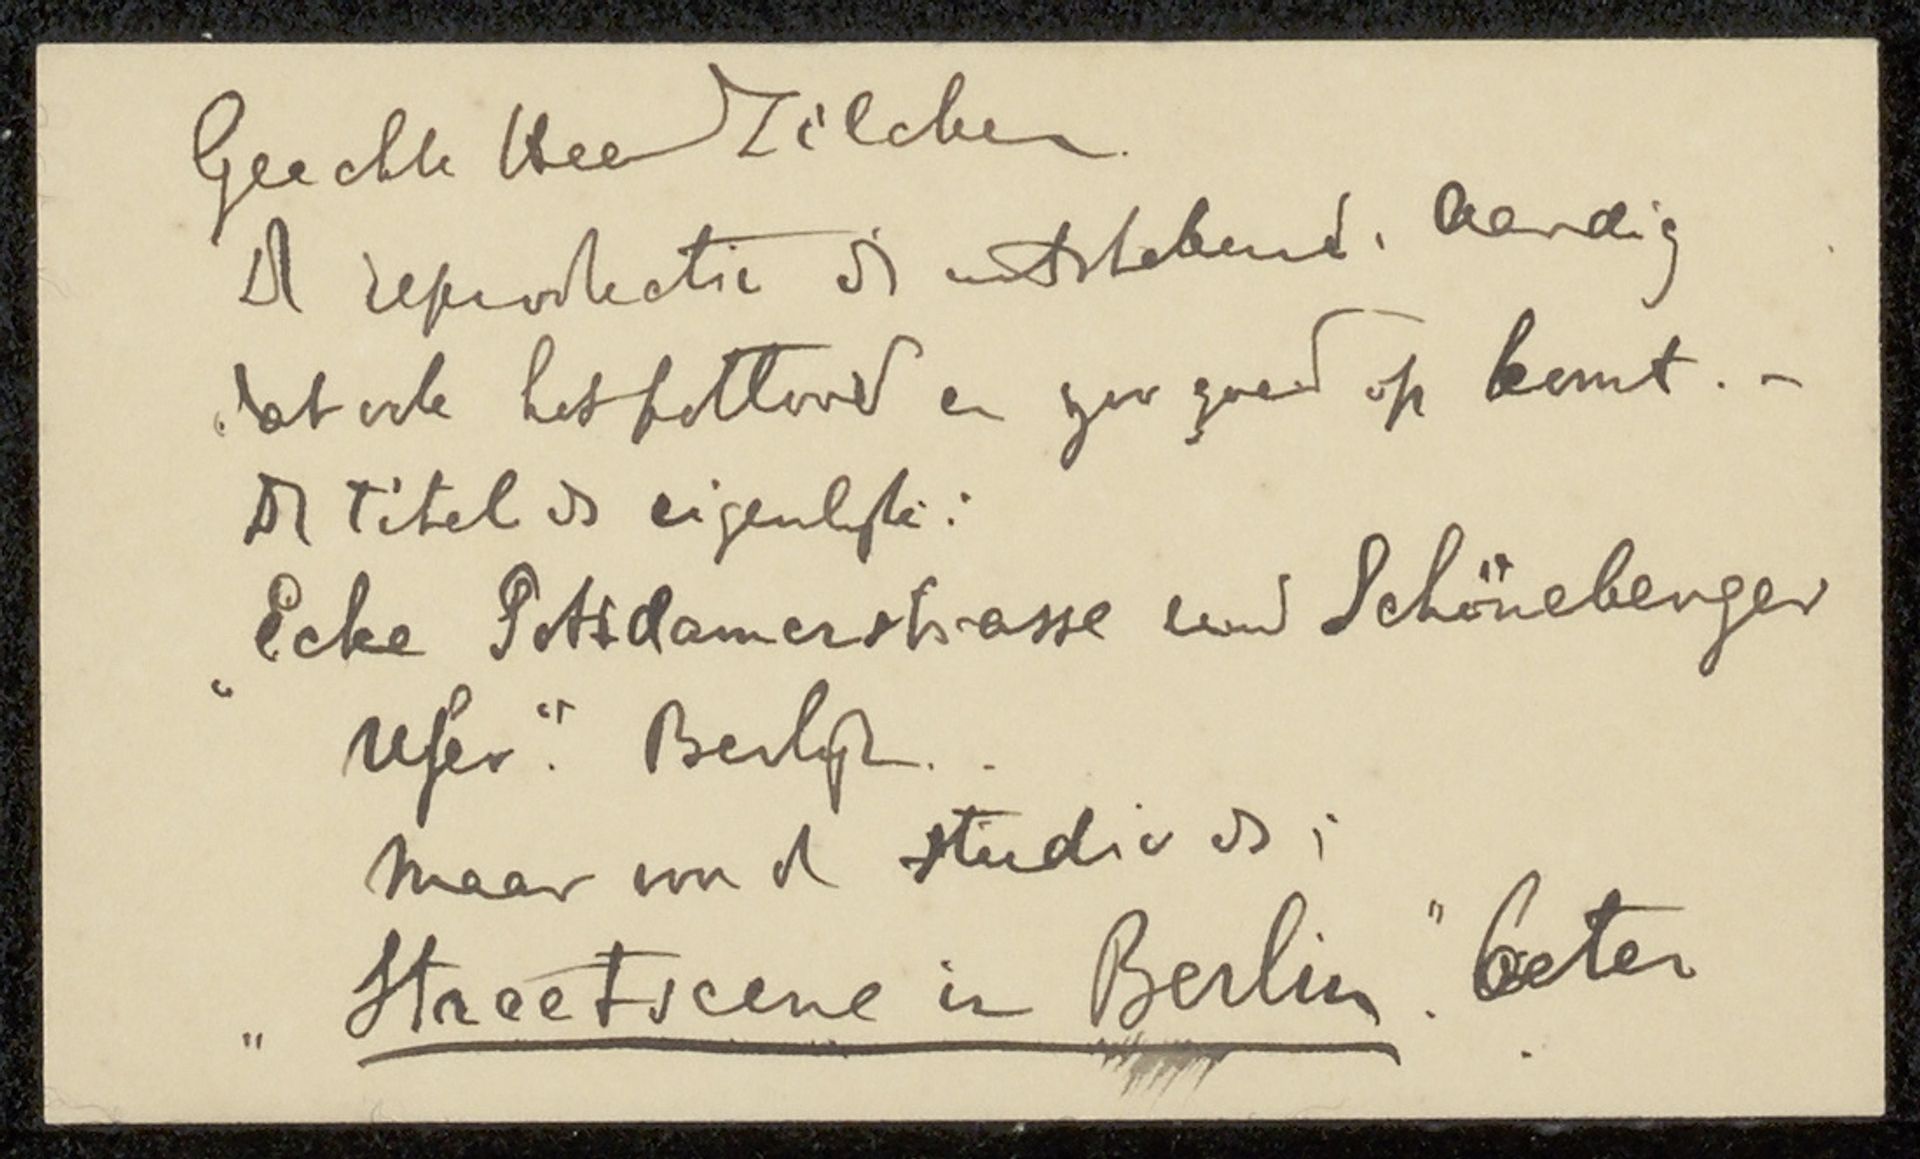 Geachte Heer Zilcken.
De reproductie is uitstekend, aardig
dat ook het potlood er zoo goed op komt. –
De titel is eigenlijk:
"Ecke Potsdamerstrasse und Schöneberger
Ufer". Berlijn.
maar voor de studie is;
"Streetscene in Berlin". beter